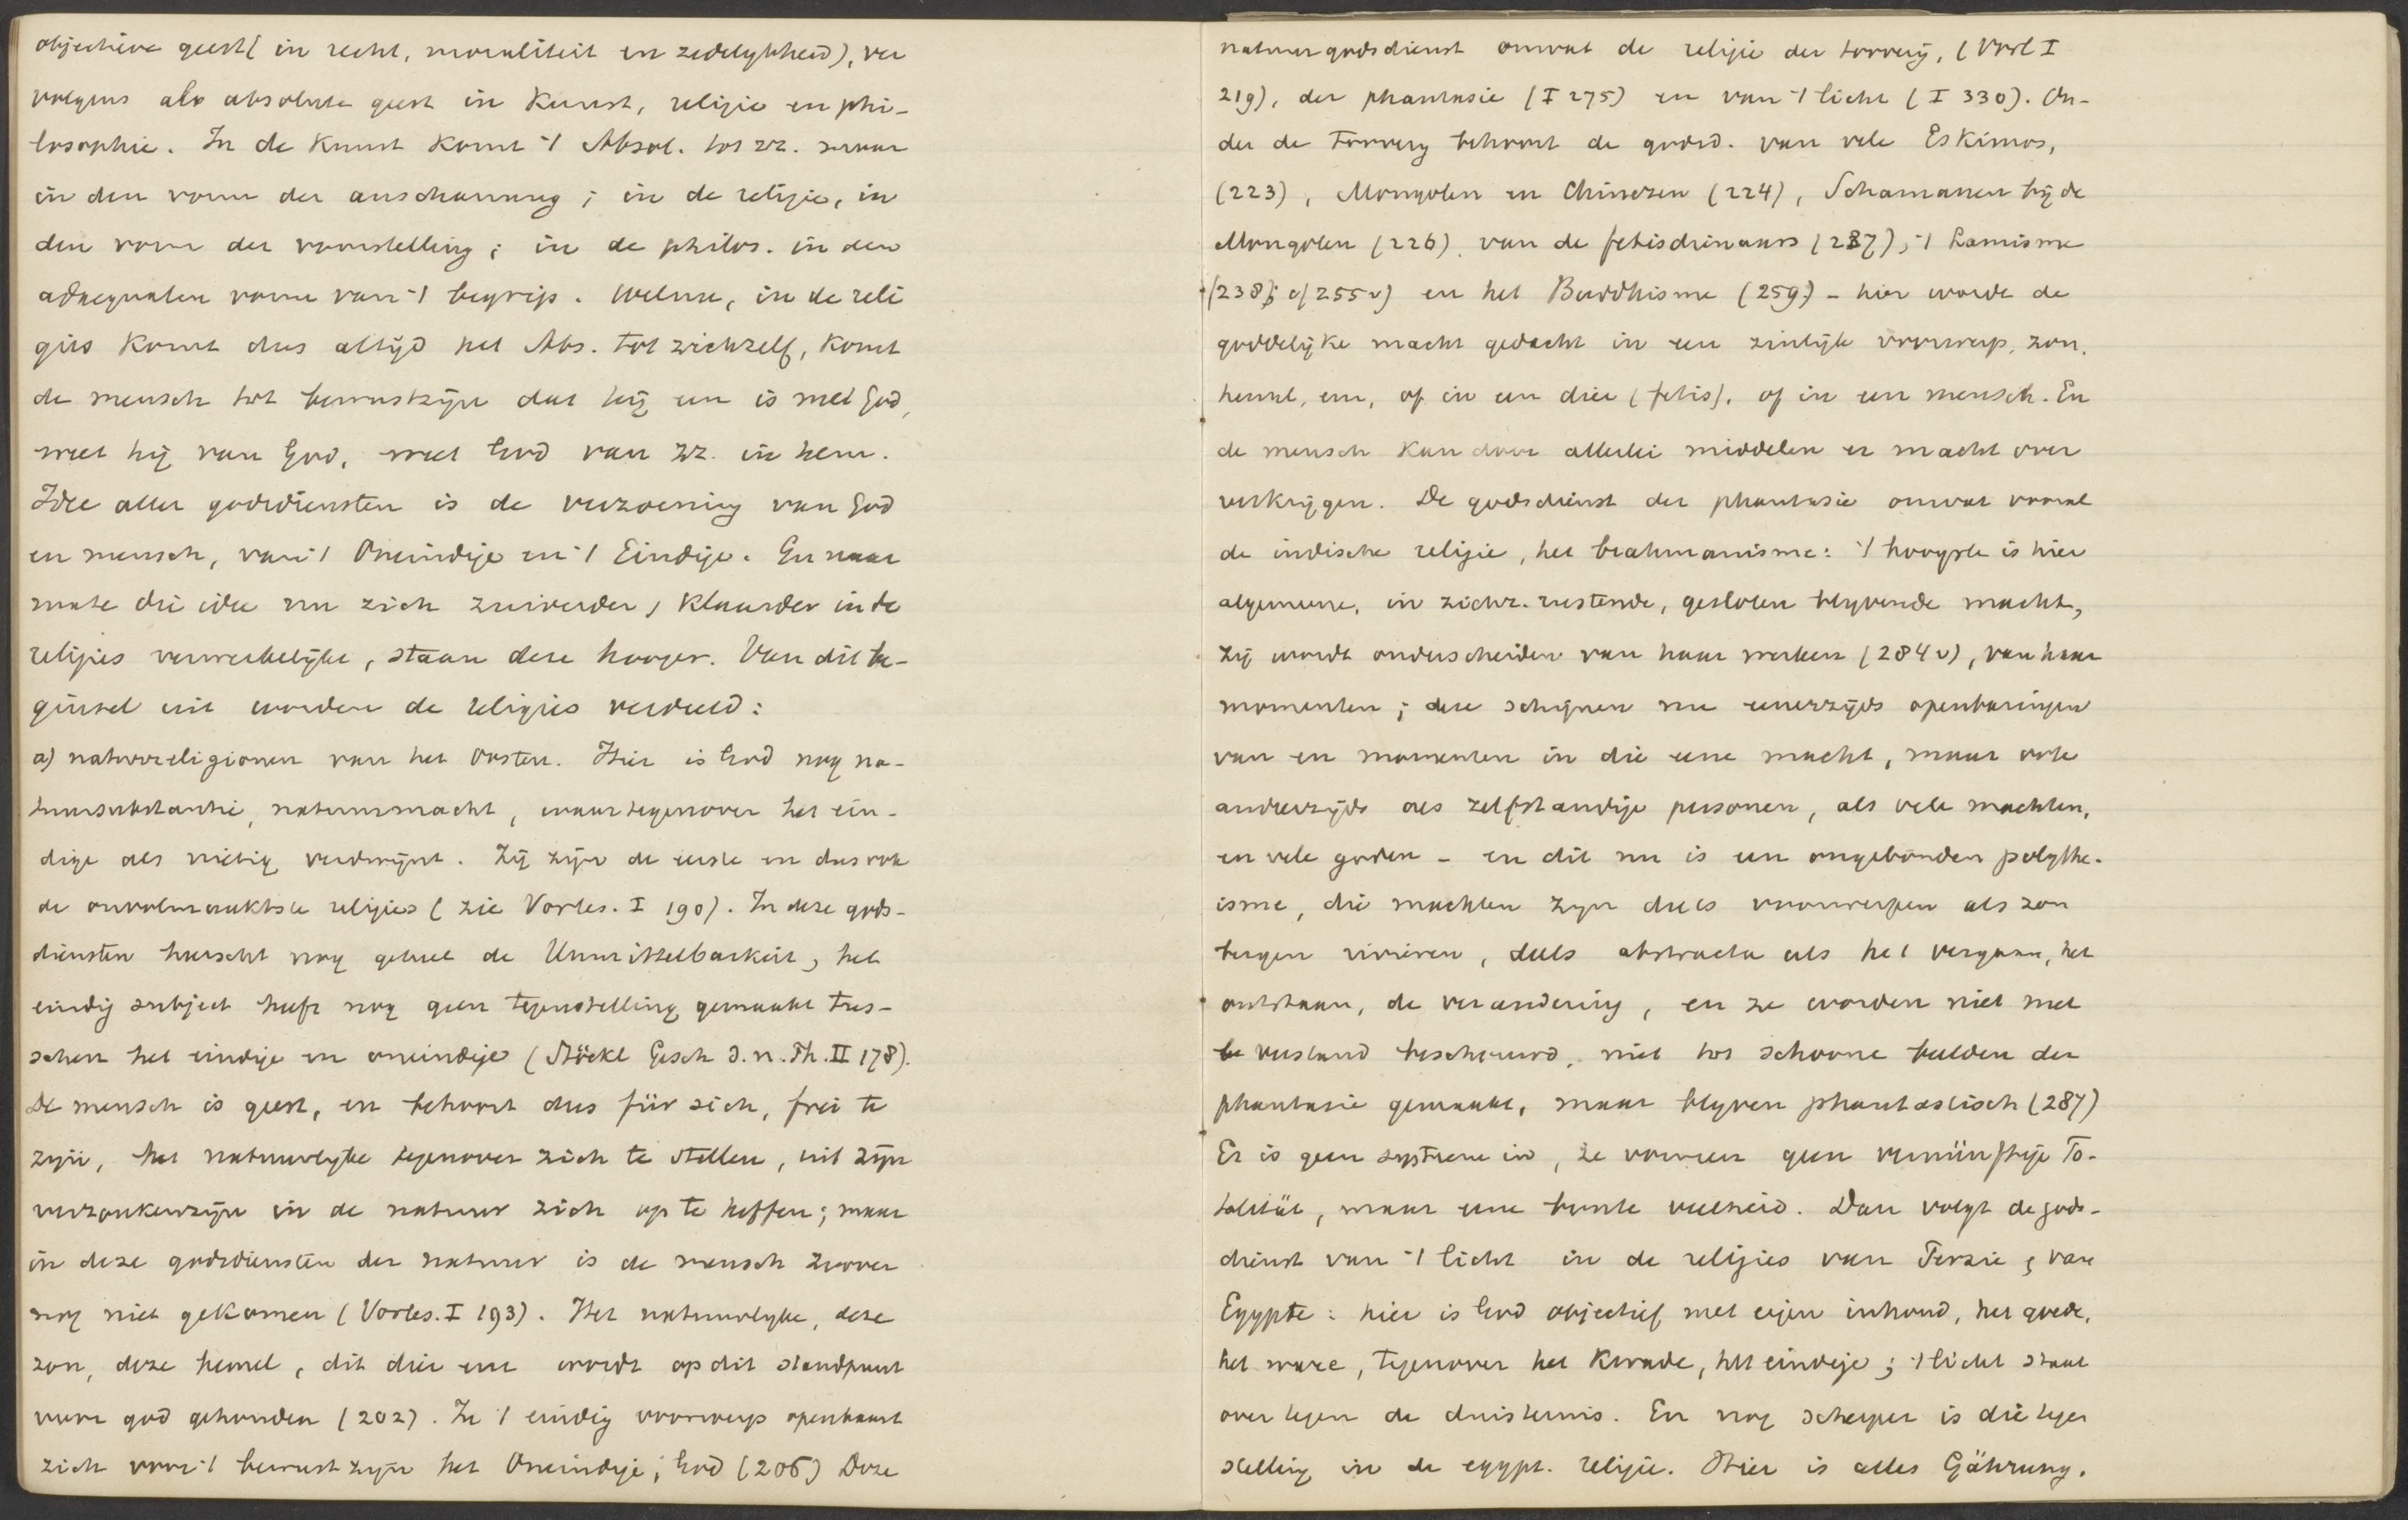 objectieve geest (in recht, moraliteit en zedelykheid), ver
volgens als absolute geest in Kunst, religie en phi-
losophie. In de Kunst komt 't Absol. tot zz. maar
in den vorm der anschauung; in de religie, in
den vorm der voorstelling; in de philos. in den
adaequaten vorm van 't begrip. Welnu, in de reli
gies komt dus altijd het Abs. tot zichzelf, komt
de mensch tot bewustzijn dat hij een is met God,
weet hij van God, weet God van zz. in hem.
Idee aller godsdiensten is de verzoening van God
en mensch, van 't Oneindige en 't Eindige. En naar
mate die idee nu zich zuiverder, klaarder in de
religies verwerkelijkt, staan deze hooger. Van dit be-
ginsel uit worden de religies verdeeld:
a) naturreligionen van het Oosten. Hier is God nog na-
tuursubstantie, natuurmacht, waartegenover het ein-
dige als nietig verdwijnt. Zij zijn de eerste en dus ook
de onvolmaaktste religies (zie Vorles. I 190). In deze gods-
diensten heerscht nog geheel de Unmittelbarkeit, het
eindig subject heeft nog geen tegenstelling gemaakt tus-
schen het eindige en oneindige (Stöckl Gesch d. n. Ph. II 178).
De mensch is geest, en behoort dus für sich, frei te
zijn, het natuurlyke tegenover zich te stellen, uit zijn
verzonkenzijn in de natuur zich op te heffen; maar
in deze godsdiensten der natuur is de mensch zoover
nog niet gekomen (Vorles. I 193). Het natuurlyke, deze
zon, deze hemel, dit dier enz wordt op dit standpunt
voor god gehouden (202). In 't eindig voorwerp openbaart
zich voor 't bewustzijn het Oneindige, God (206) Deze
natuurgodsdienst omvat de religie der toovery, (Vorl I
219), der phantasie (I 275) en van 't licht (I 330). On-
der de Toovery behoort de godsd. van vele Eskimos,
(223), Mongolen en Chinezen (224), Schamanen bij de
Mongolen (226), van de fetisdienaars (237), 't Lamisme
(238; cf 255v) en het Buddhisme (259) - hier wordt de
goddelijke macht gedacht in een zinlijk voorwerp, zon,
hemel, enz, of in een dier (fetis), of in een mensch. En
de mensch kan door allerlei middelen er macht over
verkrijgen. De godsdienst der phantasie omvat vooral
de indische religie, het brahmanisme: 't hoogste is hier
algemeene, in zichz. rustende, gesloten blyvende macht,
zij wordt onderscheiden van haar werken (284v), van haar
momenten; deze schijnen nu eenerzijds openbaringen
van en momenten in die eene macht, maar ook
anderzijds als zelfstandige personen, als vele machten,
en vele goden - en dit nu is een ongebonden polythe-
isme, die machten zijn deels voorwerpen als zon
bergen rivieren, deels abstracta als het vergaan, het
ontstaan, de verandering, en ze worden niet met
verstand beschouwd, niet tot schoone beelden der
phantasie gemaakt, maar blyven phantastisch (287)
Er is geen systeem in, ze vormen geen vernünftige To-
talität, maar eene bonte veelheid. Dan volgt de gods-
dienst van 't licht in de religies van Perzie, van
Egypte: hier is God objectief met eigen inhoud, het goede,
het ware, tegenover het Kwade, het eindige; 't licht staat
over tegen de duisternis. En nog scherper is die tegen
stelling in de egypt. religie. Hier is alles Gährung.